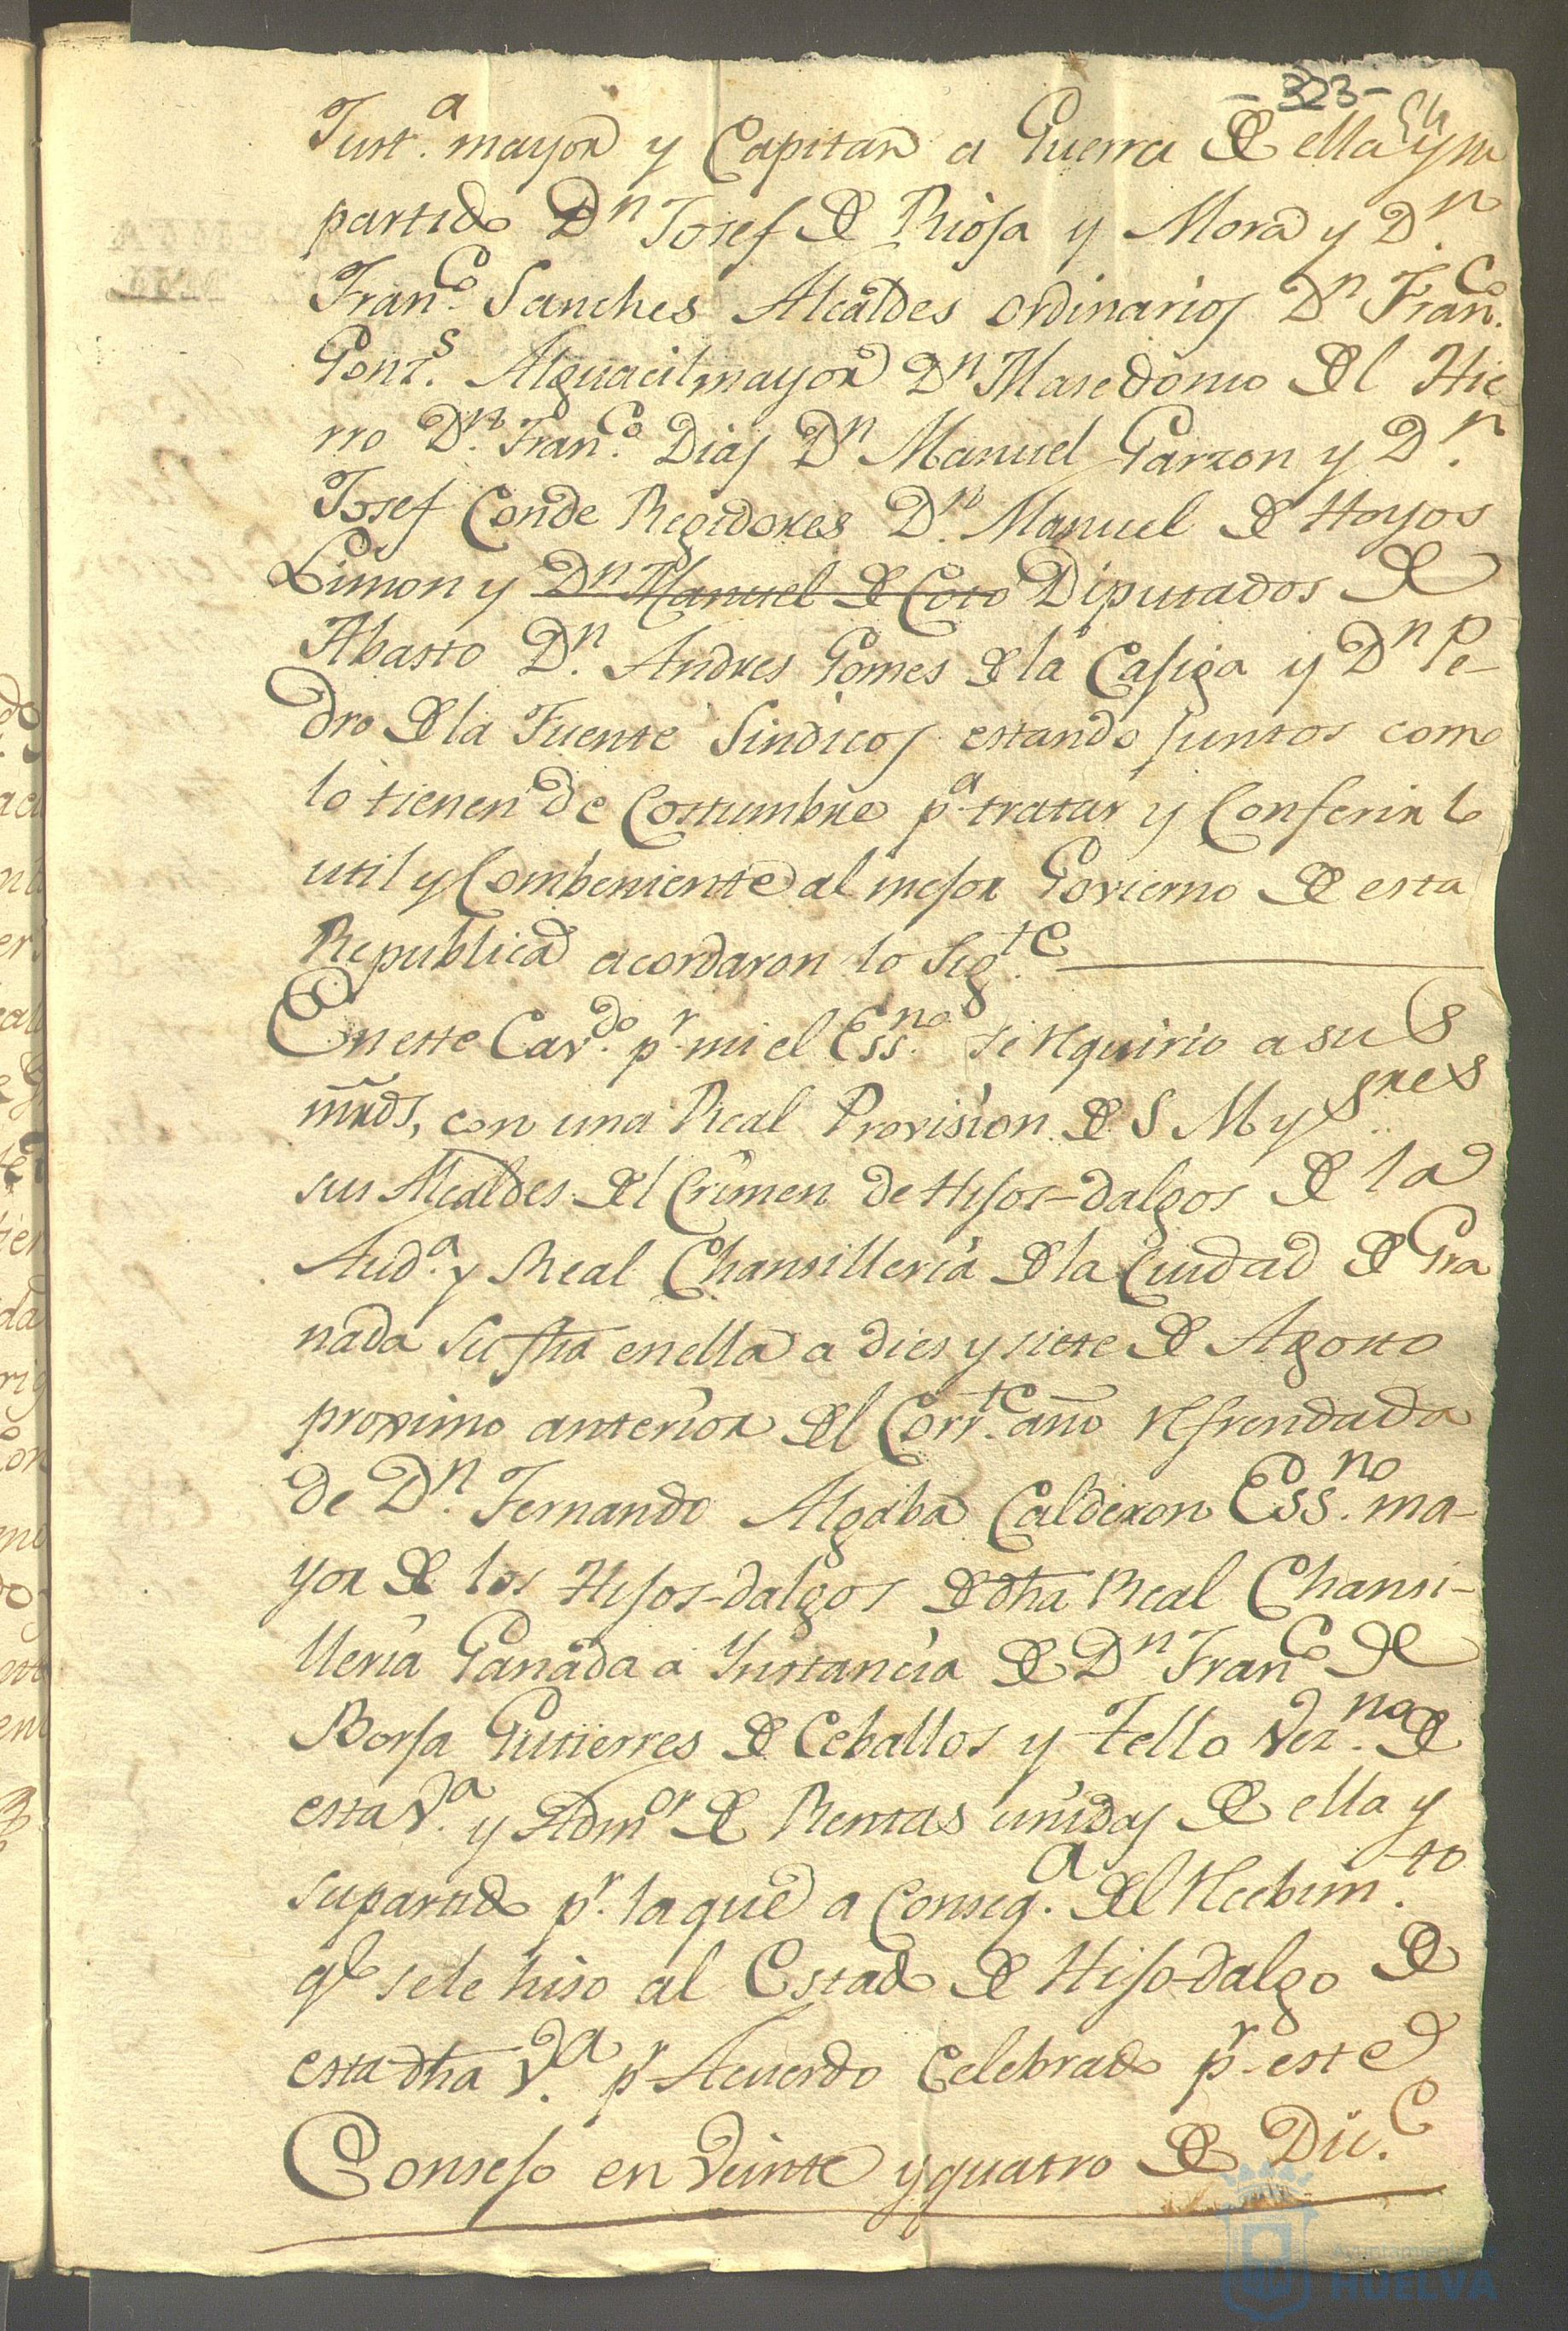 -323-
Just.ª mayor y Capitan a Guerra de ella y su
partido Dn Josef de Rioja y Mora y D.n
Fran.co Sanches Alcaldes ordinarios Dn Fran.co
Gonz.s Alguacil mayor Dn Masedonio del Hie
rro D.n Fran.co Dias Dn Manuel Garzon y D.n
Josef Conde Regidores D.n Manuel de Hoyos
Limon y Dn Manuel de Coto Diputados de
Abasto D.n Andres Gomes de la Casiga y Dn Pe-
dro de la Fuente Sindicos estando juntos como
lo tienen de Costumbre p.ª tratar y Conferir lo
util y Combeniente al mejor Govierno de esta
Republica acordaron lo sig.te
En este Cav.do p.r mi el Ess.no se requirio a sus
mrds, con una Real Provision de S M y S.res
sus Alcaldes del Crimen de Hijos-dalgos de la
Aud.ª y Real Chansilleria de la Ciudad de Gra
nada su fha en ella a dies y siete de Agosto
proximo anterior del Corr.te año refrendada
de D.n Fernando Algaba Calderon Ess.no ma-
yor de los Hijos-dalgos de dha Real Chansi-
lleria Ganada a Ynstancia de Dn Fran.co de
Borja Gutierres de Ceballos y Tello vez.no de
esta V.ª y Adm.or de Rentas unidas de ella y
su partido p.r la que a Conseq.ª del Recibim.to
qe se le hiso al Estado de Hijo-dalgo de
esta dha V.ª p.r Acuerdo Celebrado p.r este
Consejo en Veinte y quatro de Dic.e
Ayuntamiento de
HUELVA